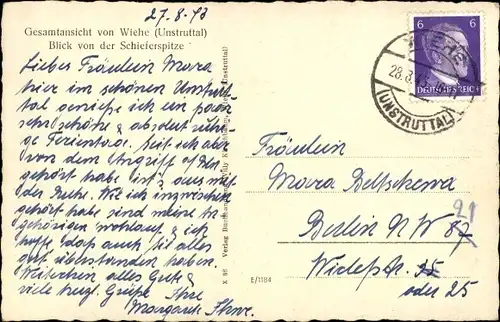 27.8.43
Gesamtansicht von Wiehe (Unstruttal)
Blick von der Schieferspitze
Liebes Fräulein Mara
hier im schönen Unstrut
tal genieße ich ein paar
sehr schöne & absolut ruhi-
ge Ferientage. Seit ich aber
von dem Angriff auf Bln
gehört habe ist's aus mit
der Ruhe. Wie ich inzwischen
gehört habe sind meine An-
gehörigen wohlauf & ich
hoffe daß auch Sie alles
gut überstanden haben.
Weiterhin alles Gute &
viele herzl. Grüße Ihre
Margarete
X 86 Verlag
E/1184
6 6
DEUTSCHES REICH
WIEHE
28.8.43
(UNSTRUTTAL)
Fräulein
Mara
Berlin N W 87
21
Wiclefstr. 35
oder 25